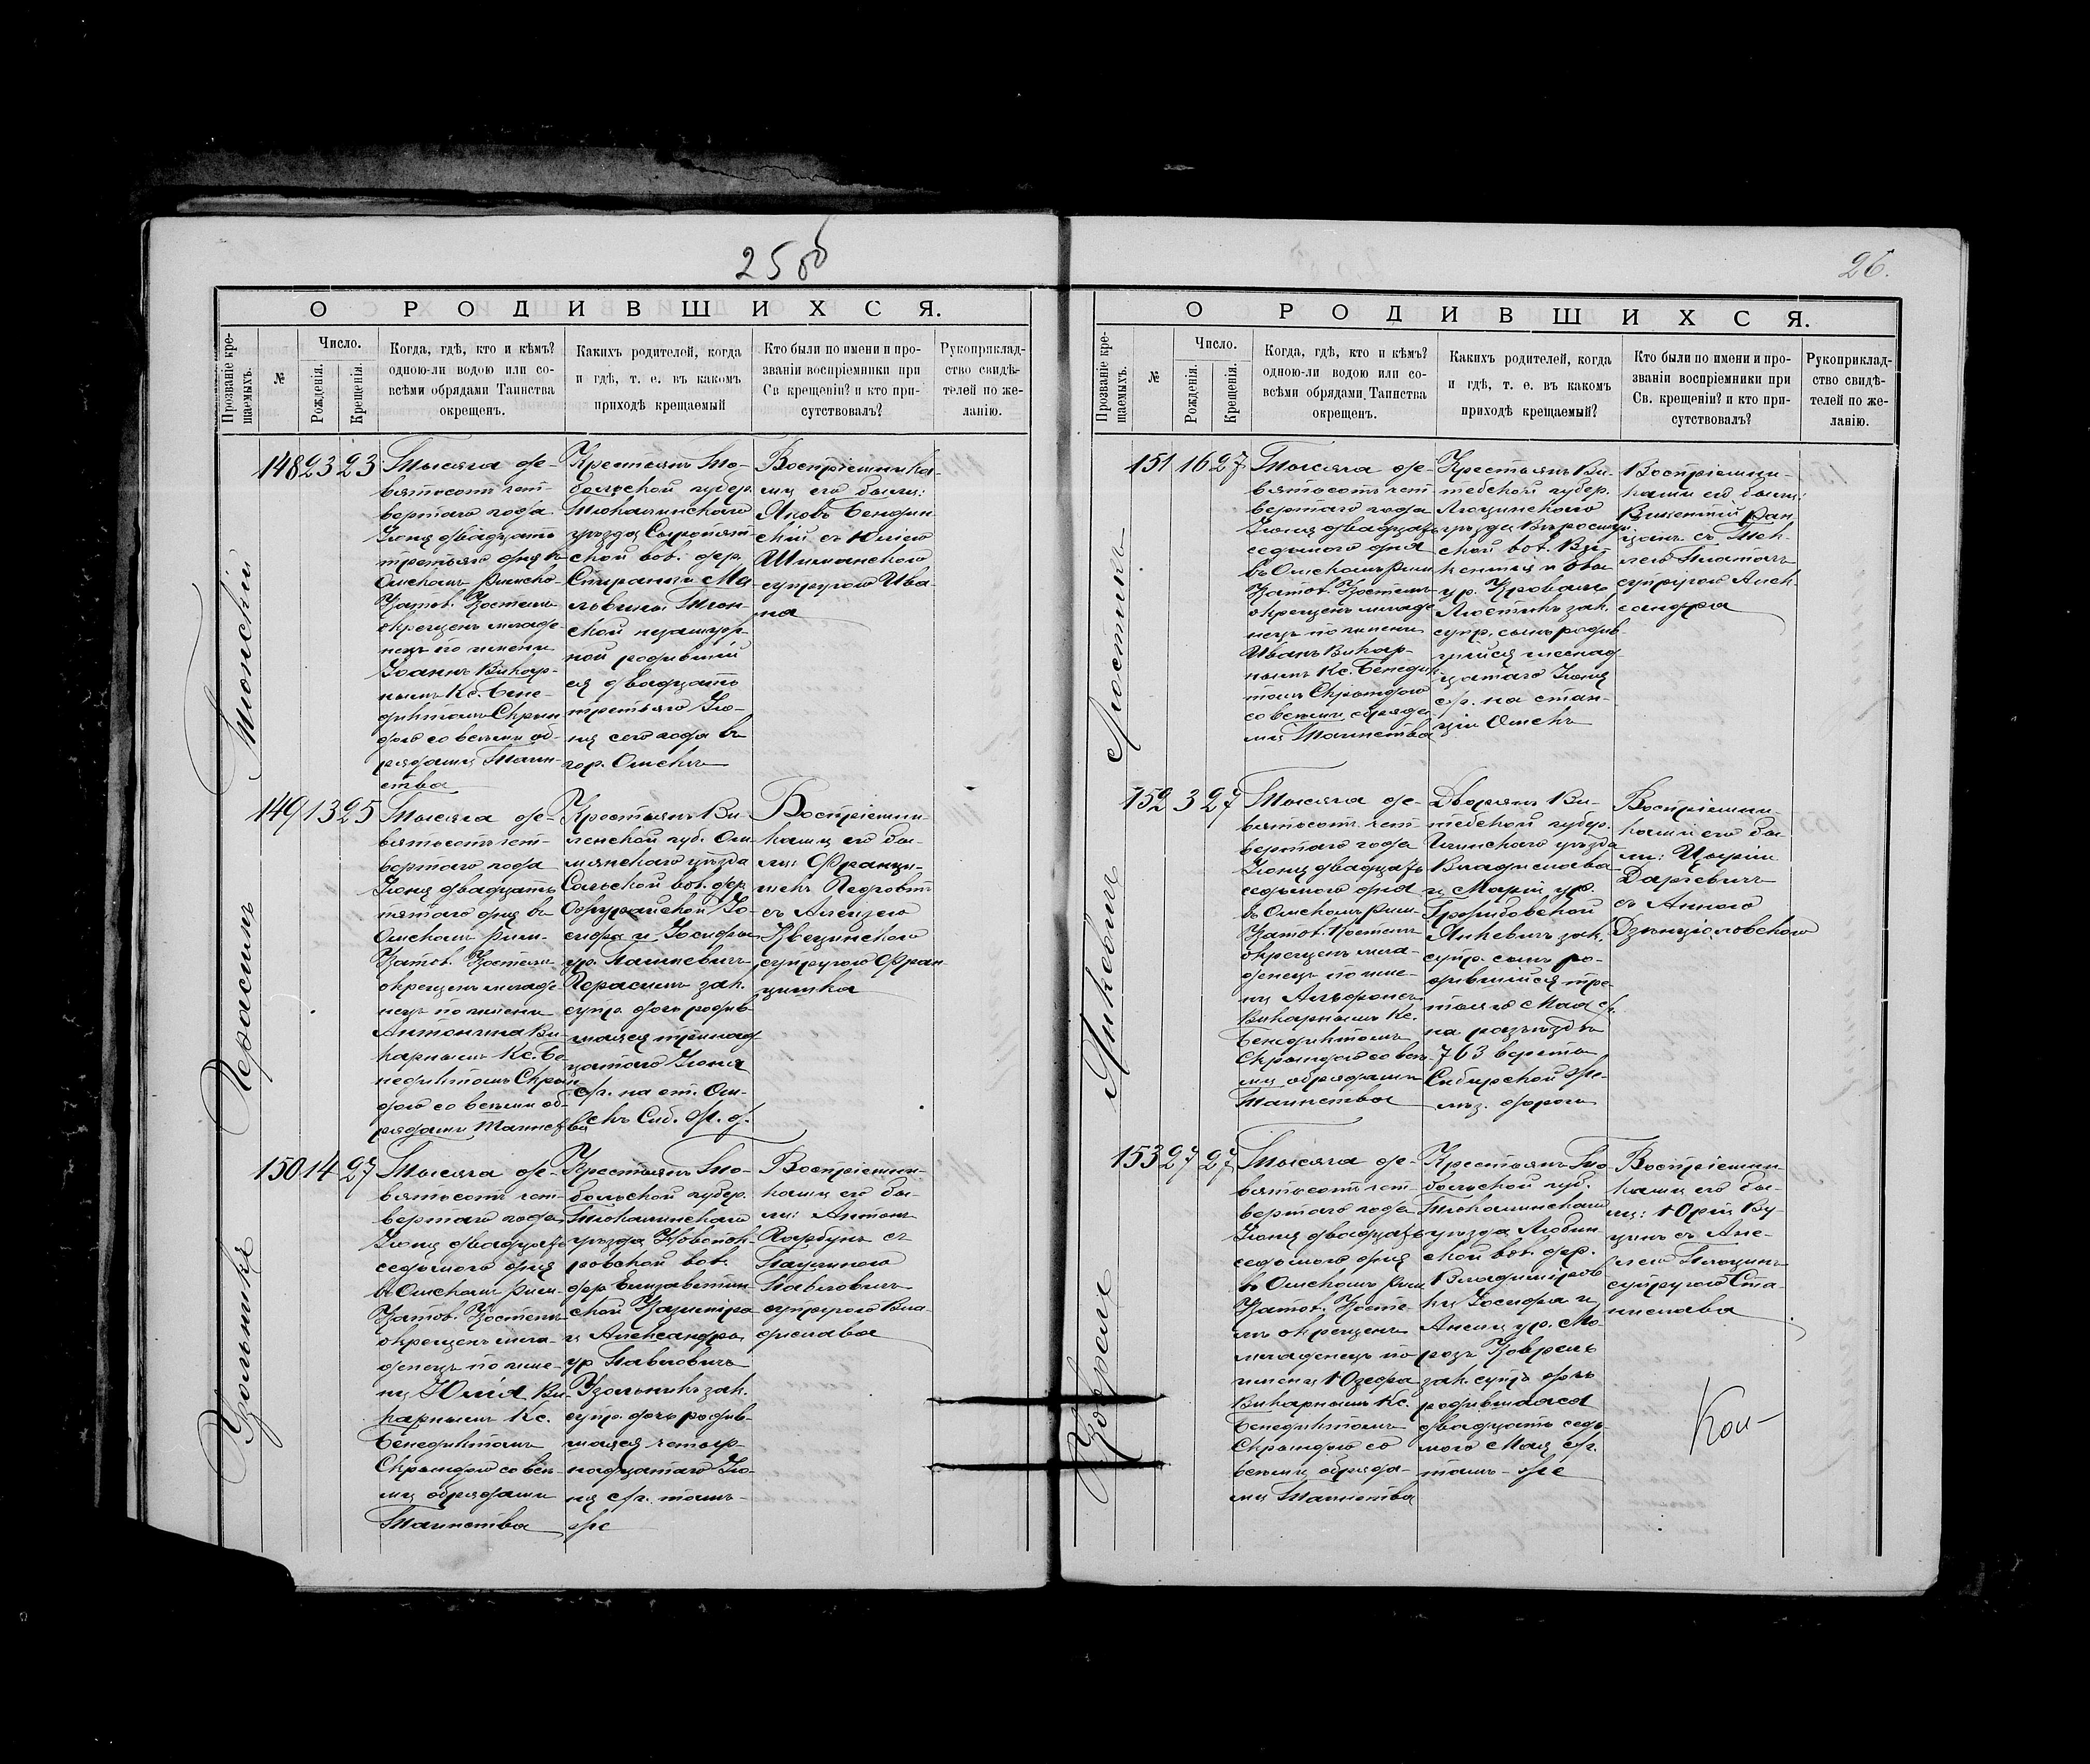 25 об
О РОДИВШИХСЯ.
Прозваніе кре-
щаемыхъ.
№
Число.
Рожденія.
Крещенія.
Когда, гдѣ, кто и кѣмъ?
одною-ли водою или со-
всѣми обрядами Таинства
окрещенъ.
Какихъ родителей, когда
и гдѣ, т. е. въ какомъ
приходѣ крещаемый
Кто были по имени и про-
званіи воспріемники при
Св крещеніи? и кто при-
сутствовалъ?
Рукоприклад-
ство свидѣ-
телей по же-
ланію.
148 23 23
Тысяча де-
вятьсотъ чет-
вертаго года
Іюня двадцать
третьяго дня въ
Омскомъ римско
Катол. Костелѣ
окрещенъ младе-
нецъ по имени
Іоаннъ Викар-
нымъ Кс. Бене-
диктомъ Скрын
дою со всѣми об-
рядами Таин-
ства
Крестьянъ То-
больской губер.
Тюкалинскаго
уѣзда
ской вол. дер.
Ма
львины Тион-
ской
ной родившій
ся двадцать
третьяго Ію-
ня сего года въ
гор. Омскѣ
Воспріемника-
ми его были:
Яковъ Бендин
скій съ Юліею
Шиманскою
супругою Ива-
на
149 13 25
Перасимъ
Тысяча де-
вятьсотъ чет-
вертаго года
Іюня двадцать
пятаго дня въ
Омскомъ рим-
Катол. Костелѣ
окрещенъ младе-
нецъ по имени
Антонина Ви-
карнымъ Кс. Бе-
недиктомъ Скрын
дою со всѣми об-
рядами Таинства
Крестьянъ Ви-
ленской губ. Ош-
мянскаго уѣзда
Сольской вол. дер.
Іо-
сифа и Іосифы
ур.
Перасимъ зак.
супр. дочь родив-
шаяся тринад
цатаго Іюня
с/г. на ст. Ом-
скъ Сиб. ж. д.
Воспріемни-
ками его бы-
ли: Франци-
шекъ Педровичъ
съ
супругою Фран
цишка
150 14 27
Тысяча де-
вятьсотъ чет-
вертаго года
Іюня двадцать
седьмого дня
въ Омскомъ рим-
Катол. Костелѣ
окрещенъ мла-
денецъ по име-
ни Юлія Ви-
карнымъ Кс.
Бенедиктомъ
Скрындою со всѣ-
ми обрядами
Таинства
Крестьянъ То-
больской губер.
Тюкалинскаго
уѣзда
ровской вол.
дер. Елизаветин-
ской Казиміра
и Александры
ур Павловичъ
зак.
супр. дочь родив-
шаяся четыр-
надцатаго Ію-
ня с/г. тамъ-
же
Воспріемни-
ками его бы-
ли: Антонъ
съ
Паулиною
Павловичъ
супругою Вла-
дислава
26.
О РОДИВШИХСЯ.
Прозваніе кре-
щаемыхъ.
№
Число.
Рожденія.
Крещенія.
Когда, гдѣ, кто и кѣмъ?
одною-ли водою или со-
всѣми обрядами Таинства
окрещенъ.
Какихъ родителей, когда
и гдѣ, т. е. въ какомъ
приходѣ крещаемый?
Кто были по имени и про-
званіи воспріемники при
Св. крещеніи? и кто при-
сутствовалъ?
Рукоприклад-
ство свидѣ-
телей по же-
ланію.
151 16 27
Люстикъ
Тысяча де-
вятьсотъ чет-
вертаго года
Іюня двадцать
седьмого дня
въ Омскомъ рим
Катол. Костелѣ
окрещенъ младе
нецъ по имени
Иванъ Викар-
нымъ Кс. Бенедик
томъ Скрындою
со всѣми обряда
ми Таинства
Крестьянъ Ви-
тебской губер.
Люцинскаго
уѣзда
ской вол. Ви-
кентія и Евы
ур.
Люстикъ зак.
супр. сынъ родив-
шійся шестнад
цатаго Іюня
с/г. на стан-
ціи Омскъ
Воспріемни-
ками его были:
Викентій
съ
супругою Алек-
сандра
152 3 27
Янкевичъ
Тысяча де-
вятьсотъ чет-
вертаго года
Іюня двадцать
седьмого дня
въ Омскомъ рим-
Катол. Костелѣ
окрещенъ мла-
денецъ по име-
ни Альфонсъ
Викарнымъ Кс.
Бенедиктомъ
Скрындою со всѣ-
ми обрядами
Таинства
Дворянъ Ви-
тебской губер.
уѣзда
Владислава
и Маріи ур.
Янкевичъ зак.
супр. сынъ ро-
дившійся тре
тьяго Мая с/г.
на разъѣздѣ
763 версты
Сибирской же-
лѣз. дороги
Воспріемни-
ками его бы-
ли:
Даркевичъ
съ Анною
153 27 27
Коврель
Тысяча де-
вятьсотъ чет-
вертаго года
Іюня двадцать
седьмого дня
въ Омскомъ рим
Катол. Косте-
лѣ окрещенъ
младенецъ по
имени Юзефа
Викарнымъ Кс.
Бенедиктомъ
Скрындою со
всѣми обряда-
ми Таинства
Крестьянъ То-
больской губ.
Тюкалинскаго
уѣзда Любин
ской вол. дер.
Владиміров
ки Іосифа и
ур. Мо-
розъ Коврель
зак. супр. дочь
родившаяся
двадцать седь
мого Мая с/г.
тамъ-же
Воспріемни-
ками его бы-
ли: Юрій Ву-
съ Ане-
лею
супругою Ста-
нислава